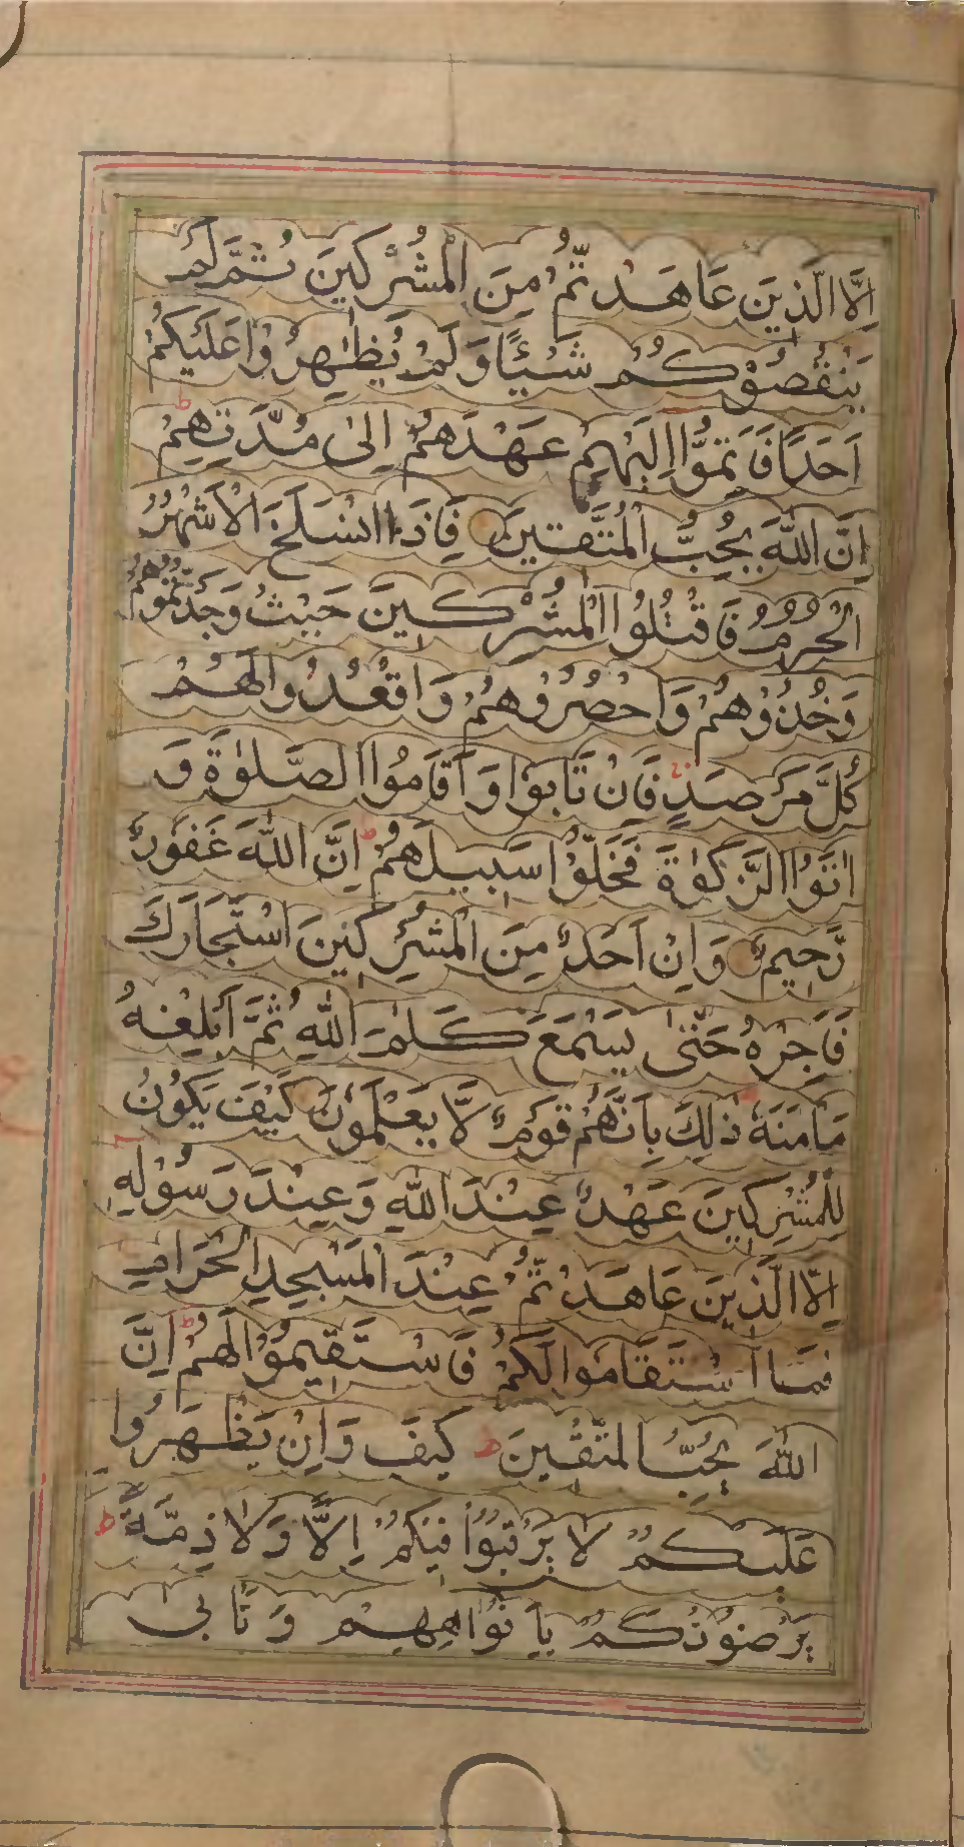 اِلَّا الَّذِينَ عَاهَدْتُّمْ مِنَ الْمُشْرِكِينَ ثُمَّ لَمْ
يَنْقُصُوْكُمْ شَيْئًا وَلَمْ يُظَاهِرُوْا عَلَيْكُمْ
اَحَدًا فَاَتِمُّوْا اِلَيْهِمْ عَهْدَهُمْ اِلٰى مُدَّتِهِمْ ط
اِنَّ اللّٰهَ يُحِبُّ الْمُتَّقِينَ فَاِذَا انْسَلَخَ الْاَشْهُرُ
الْحُرُمُ فَاقْتُلُوا الْمُشْرِكِينَ حَيْثُ وَجَدْتُّمُوْهُمْ
وَخُذُوْهُمْ وَاحْصُرُوْهُمْ وَاقْعُدُوا لَهُمْ
كُلَّ مَرْصَدٍ فَاِنْ تَابُوْا وَاَقَامُوا الصَّلٰوةَ وَ
اٰتَوُا الزَّكٰوةَ فَخَلُّوْا سَبِيلَهُمْ ط اِنَّ اللّٰهَ غَفُوْرٌ
رَّحِيمٌ وَاِنْ اَحَدٌ مِنَ الْمُشْرِكِينَ اسْتَجَارَكَ
فَاَجِرْهُ حَتّٰى يَسْمَعَ كَلٰمَ اللّٰهِ ثُمَّ اَبْلِغْهُ
مَاْمَنَهٗ ذٰلِكَ بِاَنَّهُمْ قَوْمٌ لَّا يَعْلَمُوْنَ كَيْفَ يَكُوْنُ
لِلْمُشْرِكِينَ عَهْدٌ عِنْدَ اللّٰهِ وَعِنْدَ رَسُوْلِهٖ
اِلَّا الَّذِينَ عَاهَدْتُّمْ عِنْدَ الْمَسْجِدِ الْحَرَامِ
فَمَا اسْتَقَامُوا لَكُمْ فَاسْتَقِيمُوْا لَهُمْ ط اِنَّ
اللّٰهَ يُحِبُّ الْمُتَّقِينَ كَيْفَ وَاِنْ يَّظْهَرُوا
عَلَيْكُمْ لَا يَرْقُبُوْا فِيْكُمْ اِلًّا وَّلَا ذِمَّةً ط
يَرْضُوْنَكُمْ بِاَفْوَاهِهِمْ وَتَاْبٰى